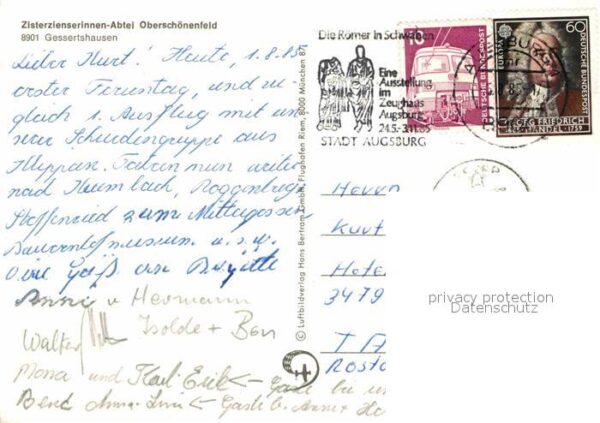 Zisterzienserinnen-Abtei Oberschönenfeld
8901 Gessertshausen
Lieber Kurt! Heute, 1.8.85
erster Ferientag, und zu-
gleich 1. Ausflug mit un-
serer Gruppe aus
Fahren nun weiter
nach Krumbach, Roggenburg,
zum Mittagessen
Bauernhofmuseum u.s.w.
Viele Grüße Brigitte
Anni u Hermann
Isolde + Ben
Walter
Mona und Karl-Erik ← Gäste bei
Bend Anna-Lina ← Gäste b. Anni + He
© Luftbildverlag Hans Bertram GmbH, Flughafen Riem, 8000 München 87
Die Römer in Schwaben
Eine
Ausstellung
im
Zeughaus
Augsburg
24.5.-3.11.85
STADT AUGSBURG
10
DEUTSCHE BUNDESPOST
60
EUROPA
DEUTSCHE BUNDESPOST
GEORG FRIEDRICH
HÄNDEL 1759
Herrn
Kurt
3479
privacy protection
Datenschutz